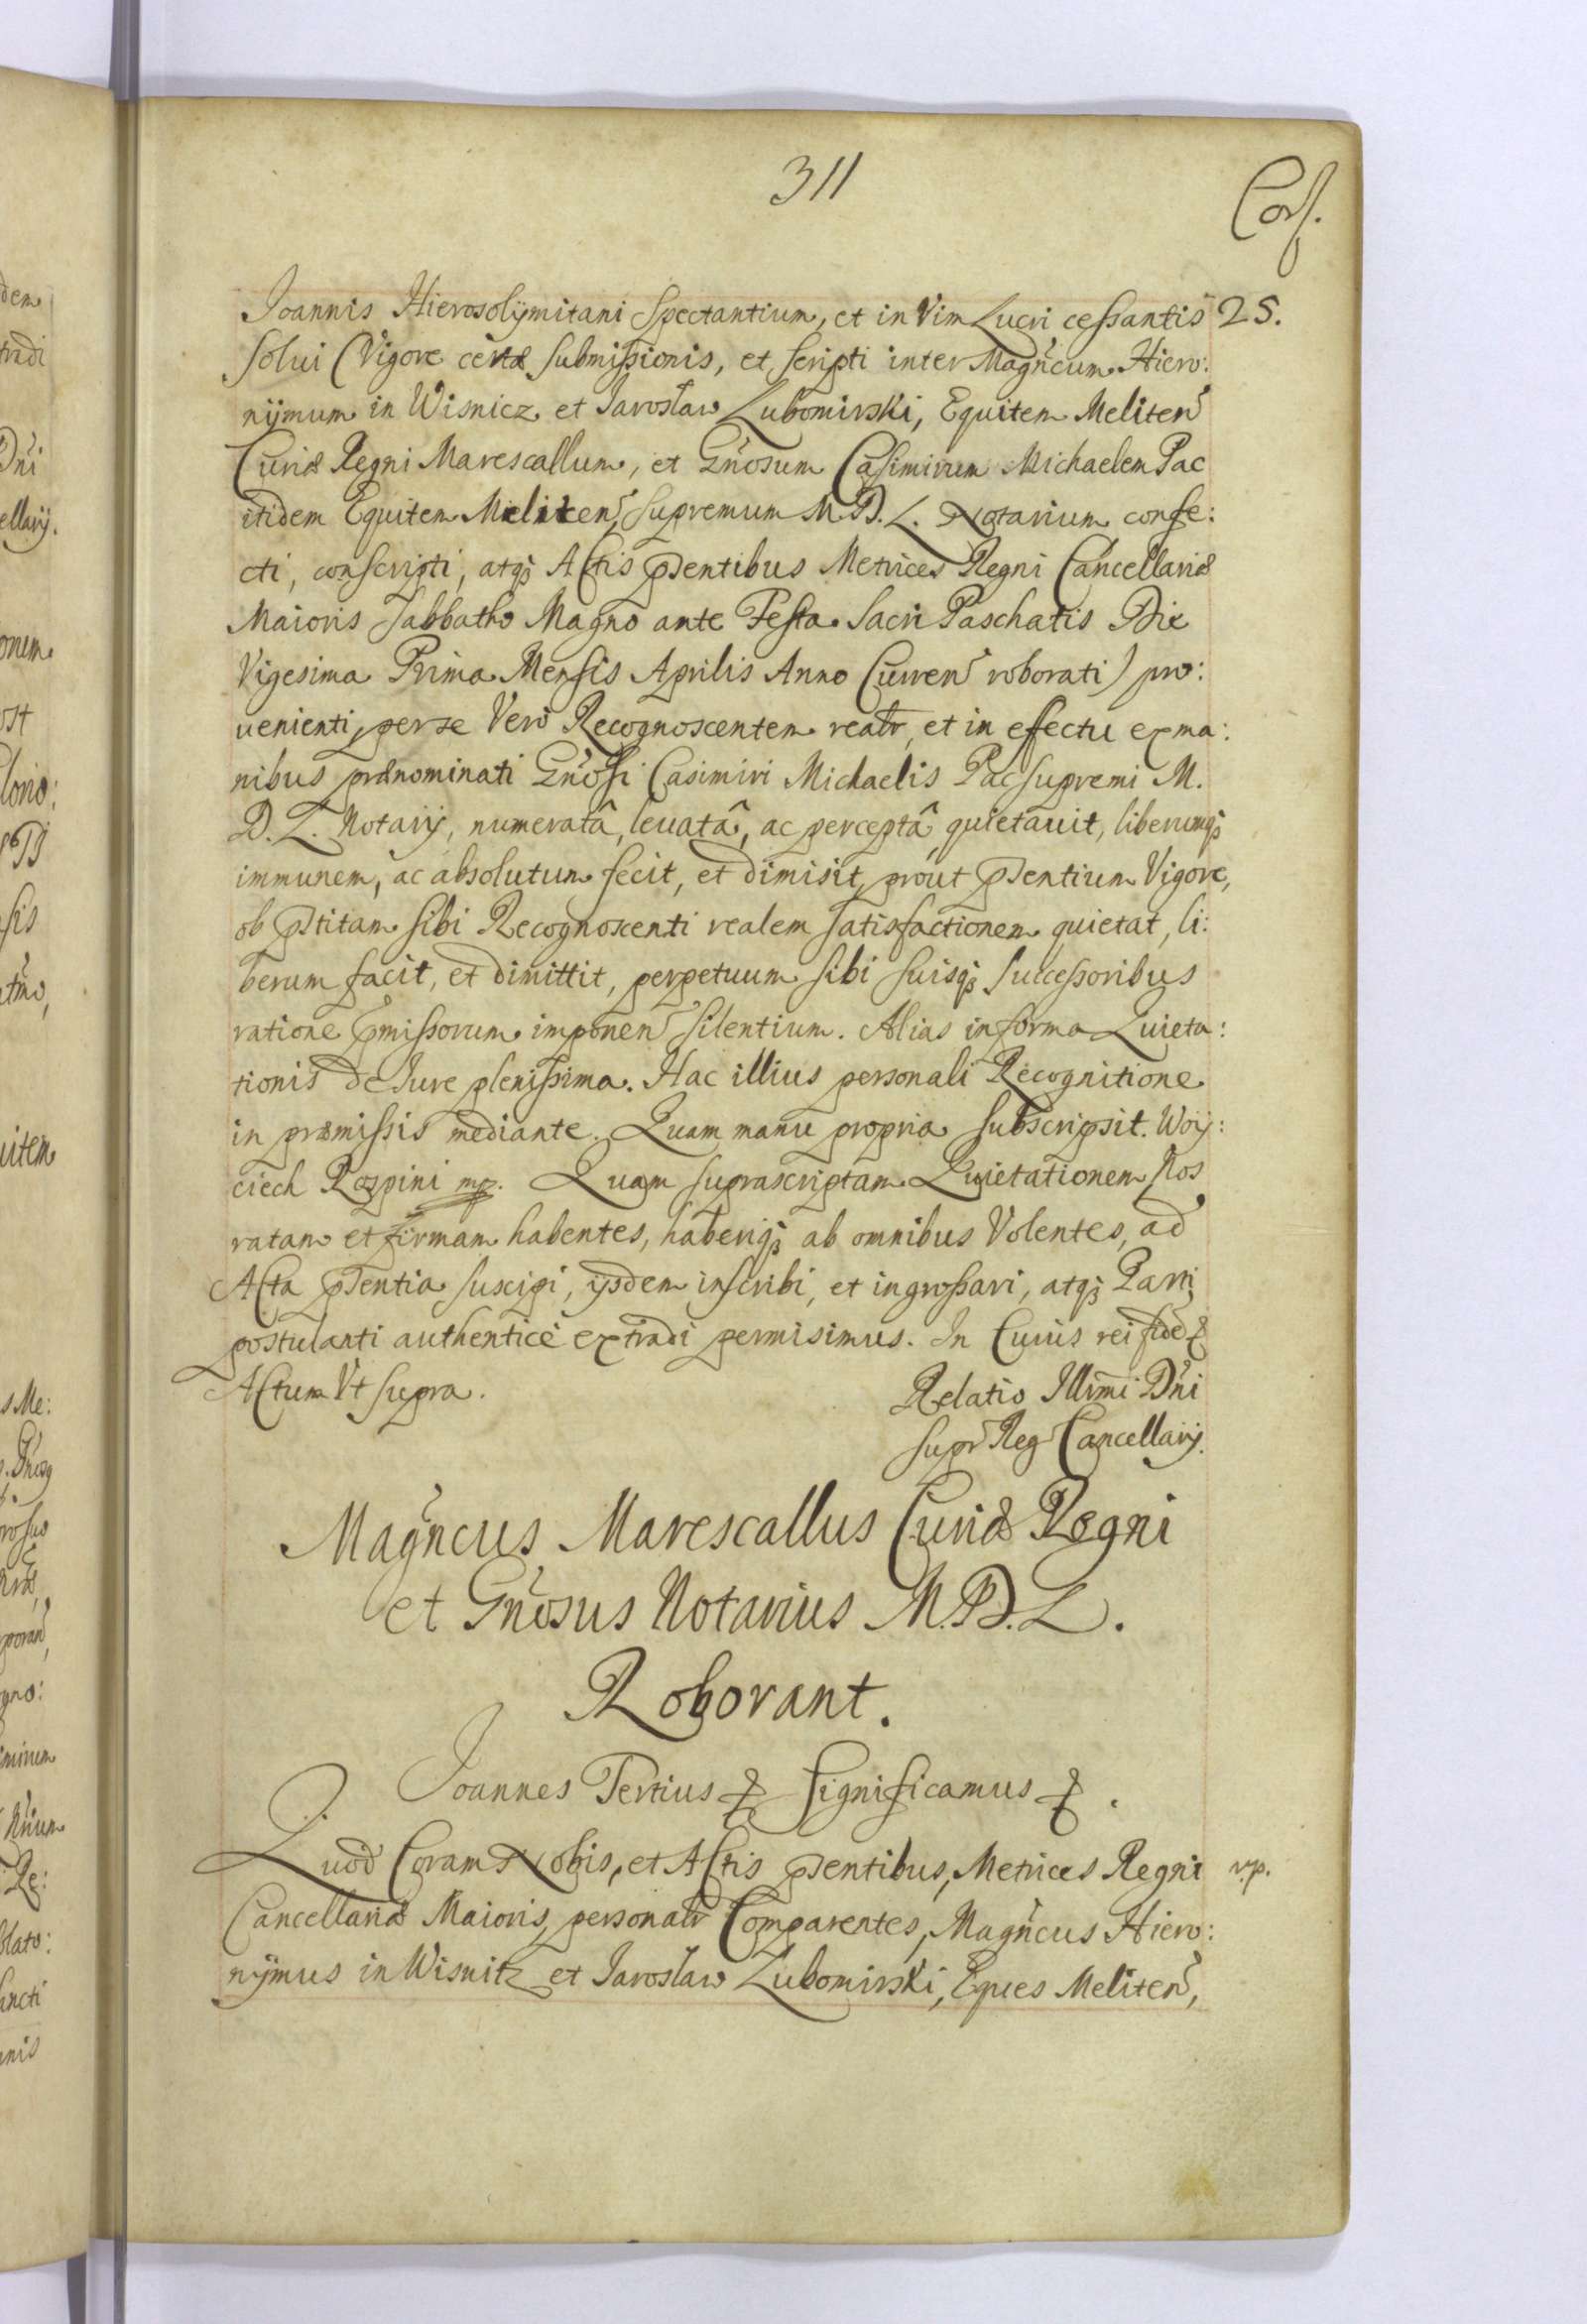 311
Cors.
Joannis Hierosolÿmitani Spectantium, et in Vim Lucri cessantis 25.
solui (Vigore certæ submissionis, et scripti inter Magñcum Hiero:
nÿmum in Wisnicz et Jarosław Lubomirski, Equitem Meliten
Curiæ Regni Marescallum, et Gñosum Casimirum Michaelem Pac
itidem Equitem Meliten, supremum M.D.L. Notarium confe:
cti, conscripti, atq; Actis pñtibus Metrices Regni Cancellariæ
Maioris Sabbatho Magno ante Festa Sacri Paschatis Die
Vigesima Prima Mensis Aprilis Anno Curren roborati) pro:
uenienti, per se Vero Recognoscentem realr, et in effectu ex ma:
nibus prænominati Gñosi Casimiri Michaelis Pac supremi M.
D.L. Notarÿ, numeratâ, leuatâ, ac perceptâ quietauit, liberumq;
immunem, ac absolutum fecit, et dimisit, prout pñtium Vigore,
ob pstitam sibi Recognoscenti realem satisfactionem quietat, li:
berum facit, et dimittit, perpetuum sibi suisq; successoribus
ratione pmissorum imponen silentium. Alias in forma Quieta:
tionis de Jure plenissima. Hac illius personali Recognitione
in præmissis mediante. Quam manu propria subscripsit. Woÿ:
ciech Rospini mp. Quam suprascriptam Quietationem Nos
ratam et firmam habentes, haberiq; ab omnibus Volentes, ad
Acta pñtia suscipi, ÿsdem inscribi, et ingrossari, atq; Parti
postulanti authenticè extradi permisimus. In Cuius rei fidē &
Actum Vt supra.
Relatio Illrmi Dñi
supr Reg Cancellarÿ.
Magñcus Marescallus Curiæ Regni
et Gñosus Notarius M.D.L.
Roborant.
Joannes Tertius & significamus &.
Quod Coram Nobis, et Actis pñtibus, Metrices Regni v.p.
Cancellariæ Maioris, personalr Comparentes, Magñcus Hiero:
nÿmus in Wisnitz et Jarosław Lubomirski, Eques Meliten,